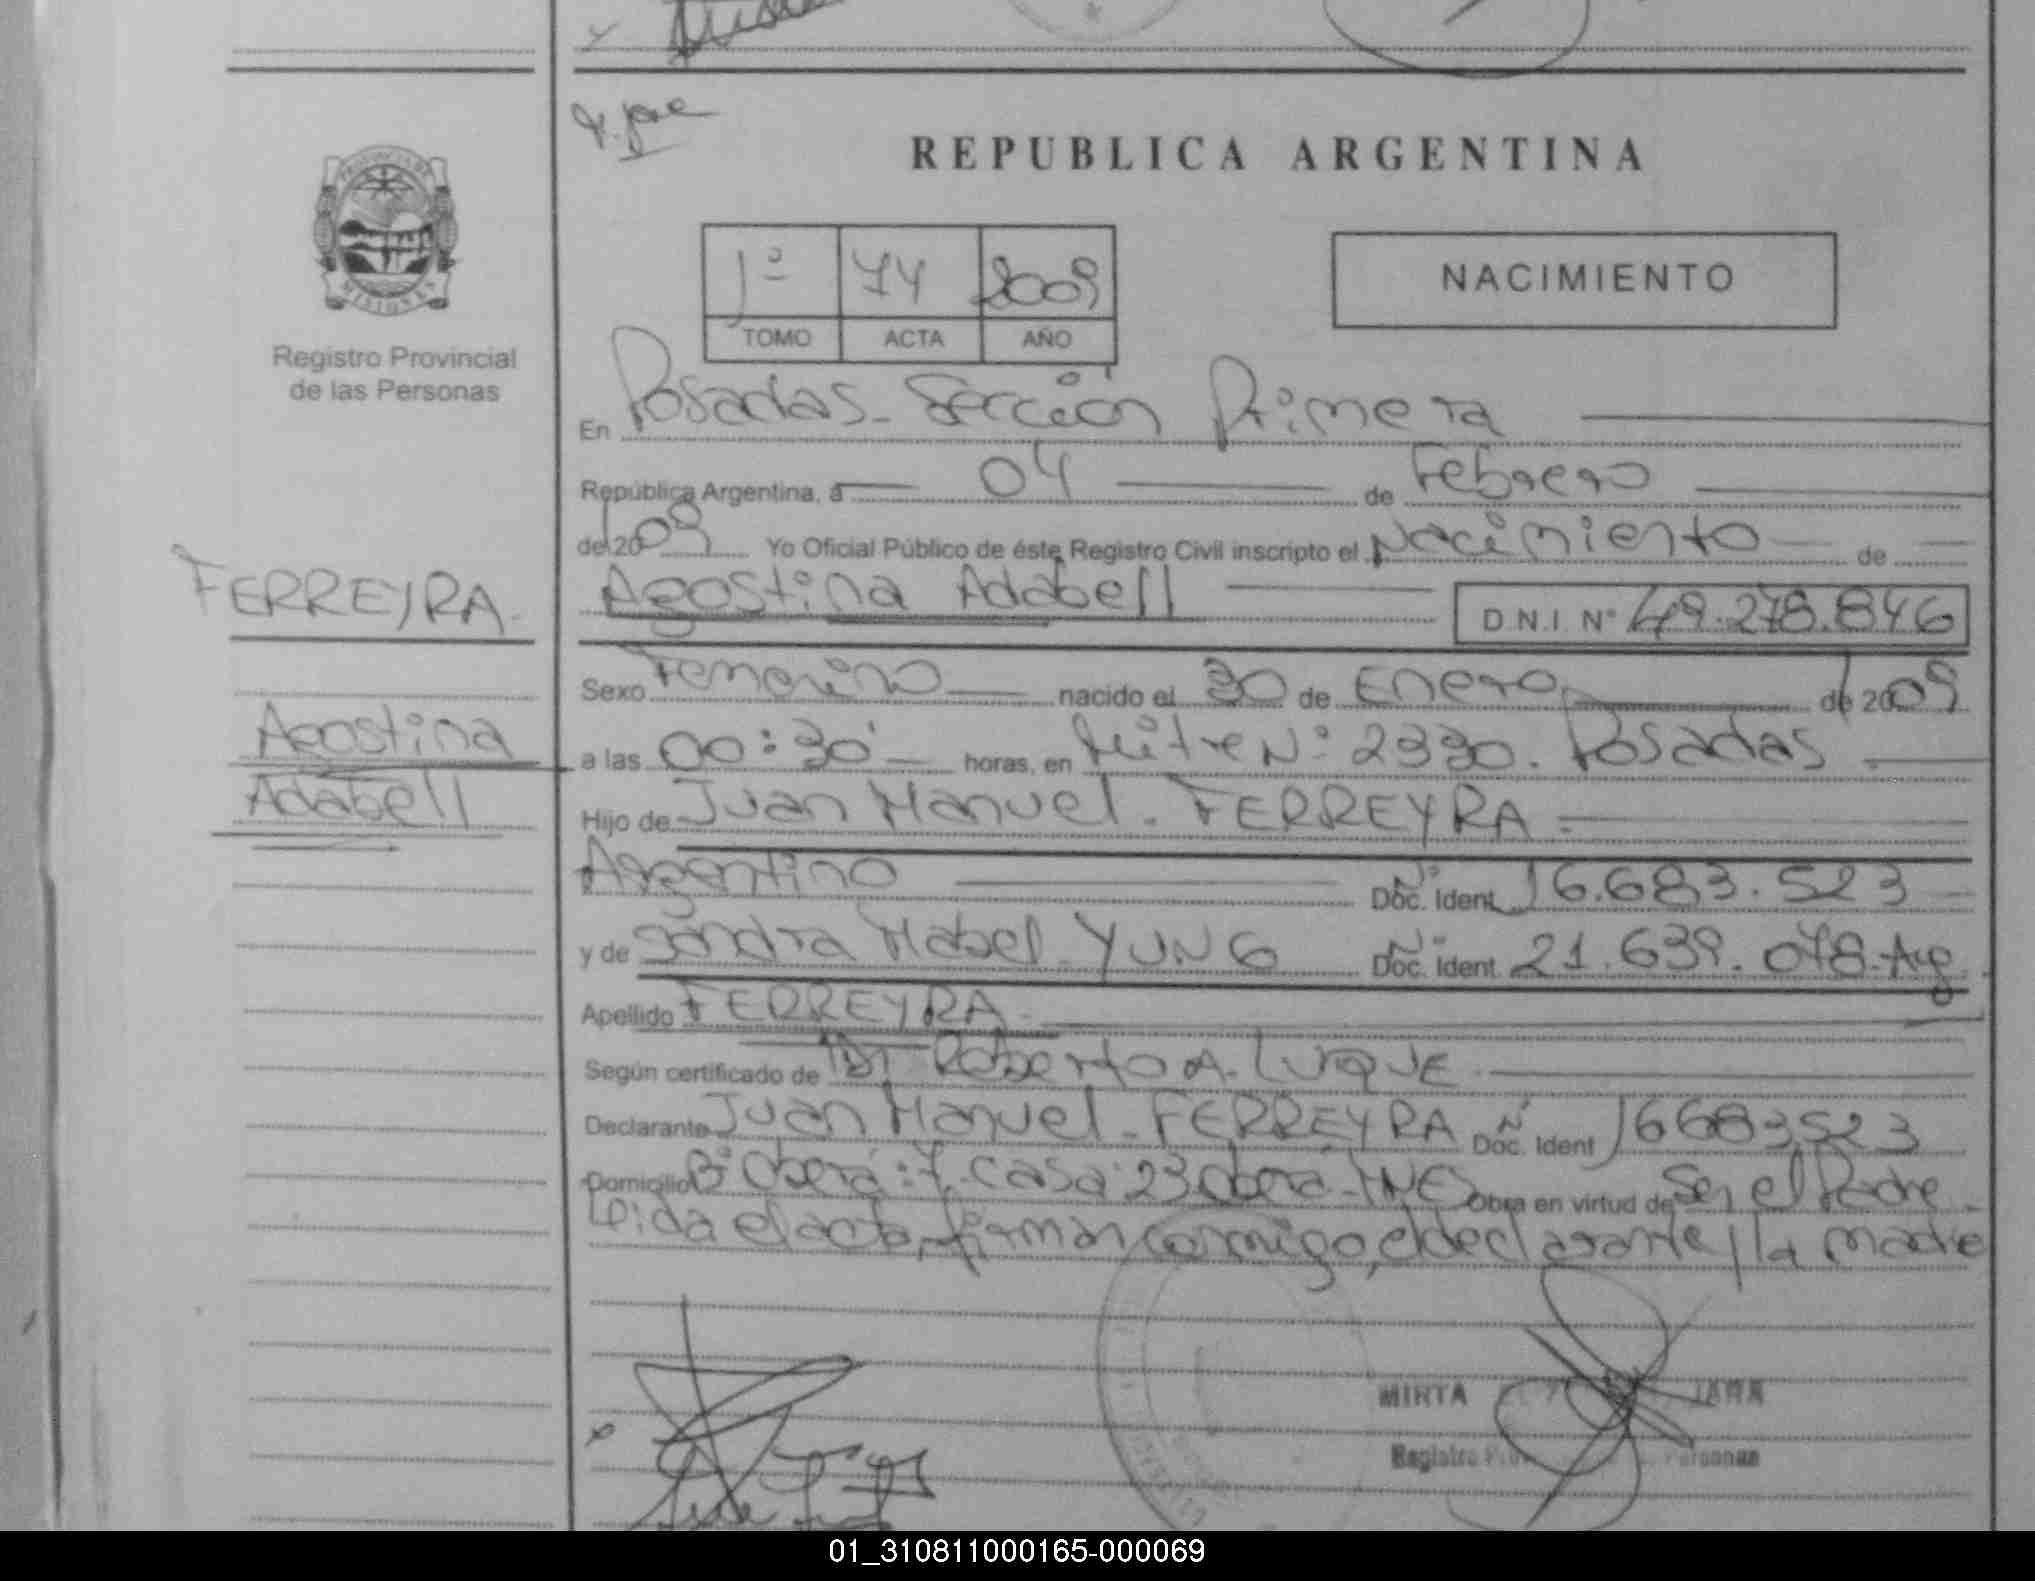 REPUBLICA ARGENTINA
PROVINCIA DE
MISIONES
Registro Provincial
de las Personas
1º 74 2009
TOMO ACTA AÑO
NACIMIENTO
En Posadas - Sección Primera
República Argentina, a 04 de Febrero
de 2009 Yo Oficial Público de éste Registro Civil inscripto el Nacimiento de
FERREYRA.
Agostina Adabell
D N.I. Nº 49.278.846
Sexo Femenino nacido el 30 de Enero de 2009
Agostina
Adabell
a las 00:30' horas, en Mitre Nº: 2330. Posadas.
Hijo de Juan Manuel - FERREYRA.
Argentino Nº Doc. Ident. 16.683.523
y de Sandra Mabel - YUNG Nº Doc. Ident. 21.639.078-Arg
Apellido FERREYRA.
Según certificado de Dr Roberto A. LUQUE.
Declarante Juan Manuel - FERREYRA Nº Doc. Ident 16683523
Domicilio Bº Oberá: 7. Casa: 23 Oberá - MNES Obra en virtud de Ser el Padre.
Leida el acta, firman conmigo, el declarante y la madre
MIRTA JARA
Registro Personas
01_310811000165-000069